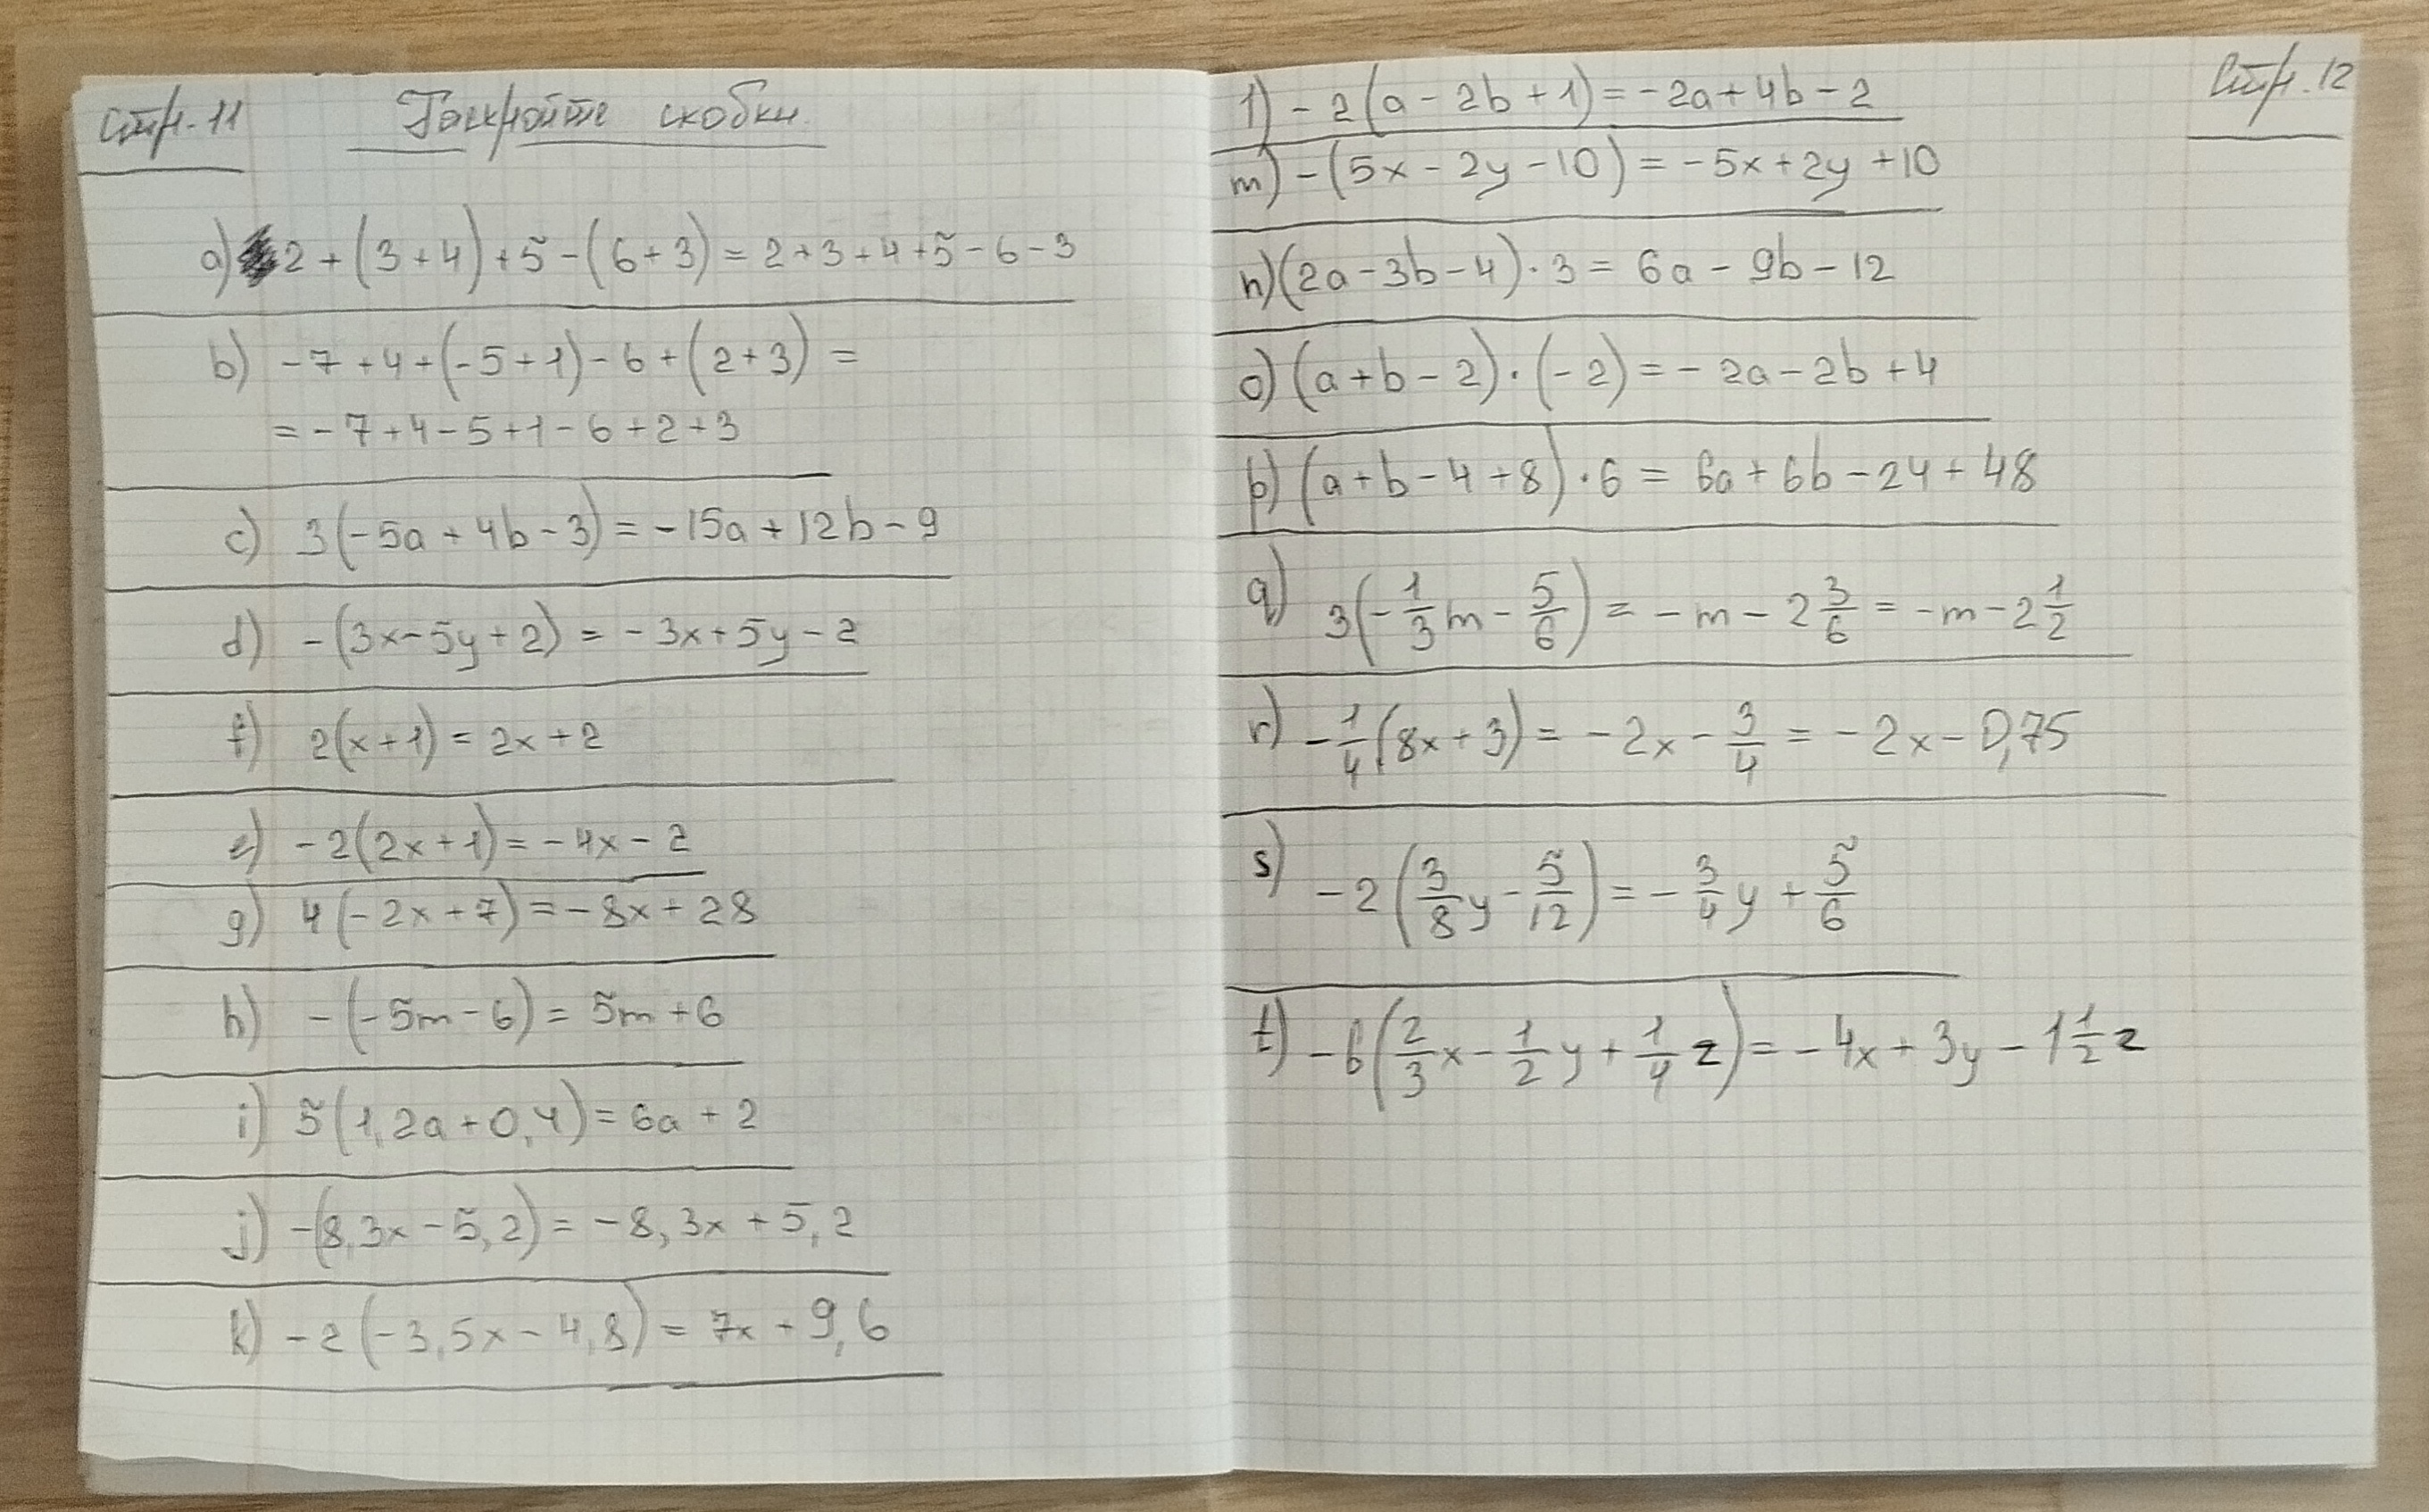 Стр. 11
Раскройте скобки.
a) 2 + (3 + 4) + 5 - (6 + 3) = 2 + 3 + 4 + 5 - 6 - 3
b) -7 + 4 + (-5 + 1) - 6 + (2 + 3) =
= -7 + 4 - 5 + 1 - 6 + 2 + 3
c) 3(-5a + 4b - 3) = -15a + 12b - 9
d) -(3x - 5y + 2) = -3x + 5y - 2
f) 2(x + 1) = 2x + 2
e) -2(2x + 1) = -4x - 2
g) 4(-2x + 7) = -8x + 28
h) -(-5m - 6) = 5m + 6
i) 5(1,2a + 0,4) = 6a + 2
j) -(8,3x - 5,2) = -8,3x + 5,2
k) -2(-3,5x - 4,8) = 7x + 9,6
Стр. 12
l) -2(a - 2b + 1) = -2a + 4b - 2
m) -(5x - 2y - 10) = -5x + 2y + 10
n) (2a - 3b - 4) · 3 = 6a - 9b - 12
o) (a + b - 2) · (-2) = -2a - 2b + 4
p) (a + b - 4 + 8) · 6 = 6a + 6b - 24 + 48
q) 3(-1/3 m - 5/6) = -m - 2 3/6 = -m - 2 1/2
r) -1/4 (8x + 3) = -2x - 3/4 = -2x - 0,75
s) -2(3/8 y - 5/12) = -3/4 y + 5/6
t) -6(2/3 x - 1/2 y + 1/4 z) = -4x + 3y - 1 1/2 z